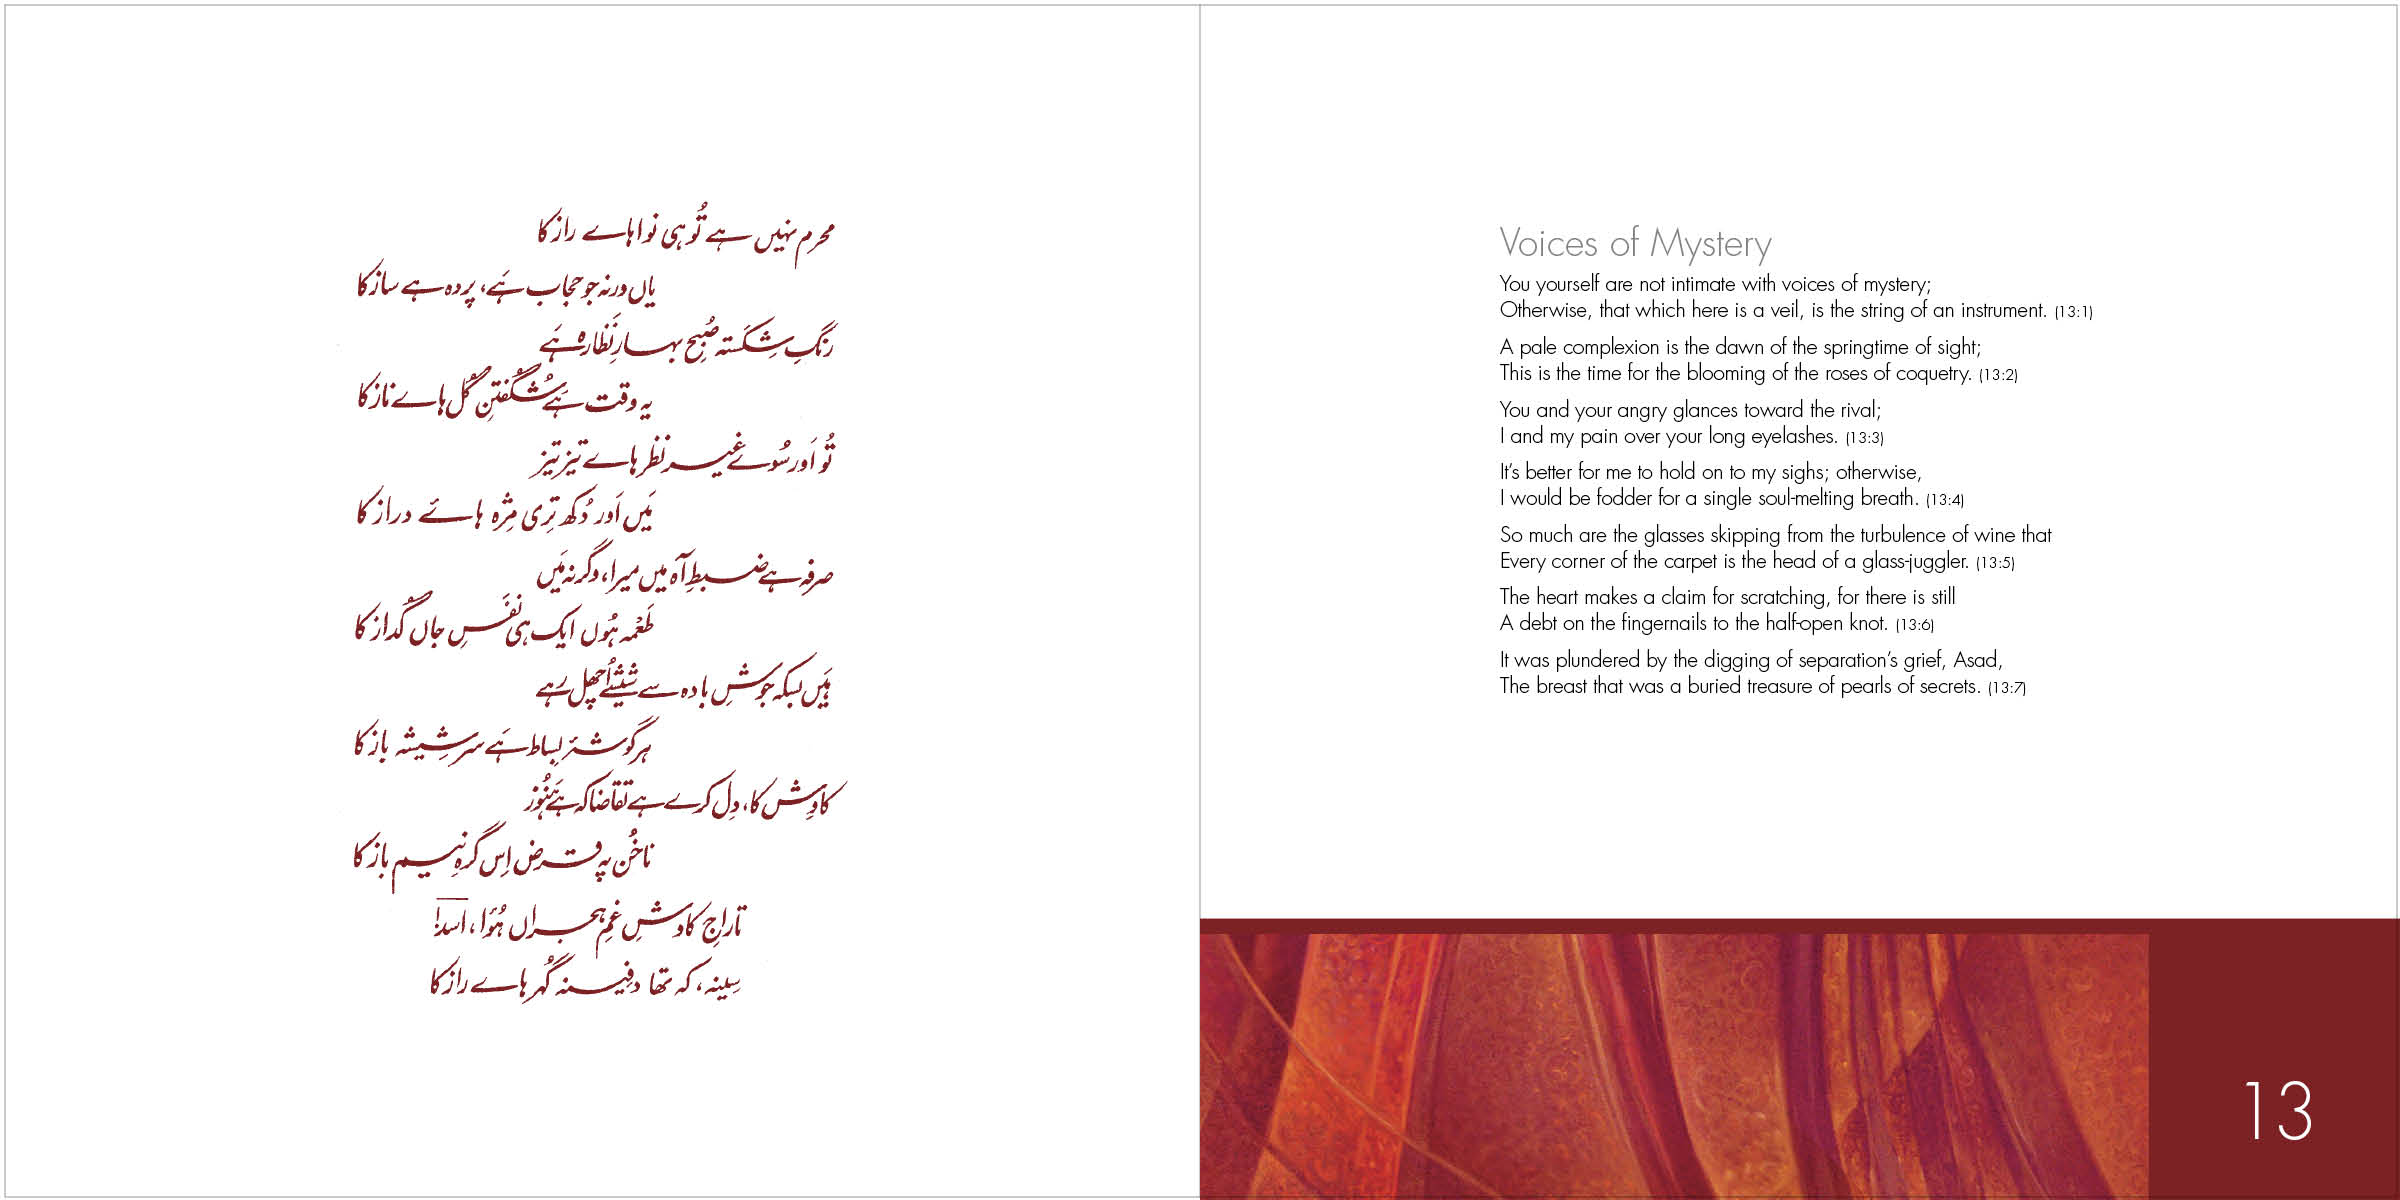 محرم نہیں ہے تُو ہی نواہاے راز کا
یاں ورنہ جو حجاب ہَے، پردہ ہے ساز کا
رنگِ شِکستہ صُبحِ بہارِ نَظارہ ہَے
یہ وقت ہَے شُگُفتنِ گُل ہاے ناز کا
تُو اَور سُوے غیر نظرہاے تیز تیز
مَیں اَور دُکھ تِری مِژہ ہائے دراز کا
صرفہ ہے ضبطِ آہ میں میرا، وگرنہ مَیں
طَعْمہ ہُوں ایک ہی نَفَسِ جاں گُداز کا
ہَیں بسکہ جوشِ بادہ سے شیشے اُچھل رہے
ہر گوشۂ بِساط ہَے سر شِیشہ باز کا
کاوِش کا، دِل کرے ہے تقاضا کہ ہَے ہَنُوز
ناخُن پہ قرض اِس گرہِ نیم باز کا
تاراجِ کاوِشِ غمِ ہجراں ہُوا، اسدؔ!
سِینہ، کہ تھا دفِینہ گُہر ہاے راز کا
Voices of Mystery
You yourself are not intimate with voices of mystery;
Otherwise, that which here is a veil, is the string of an instrument. (13:1)
A pale complexion is the dawn of the springtime of sight;
This is the time for the blooming of the roses of coquetry. (13:2)
You and your angry glances toward the rival;
I and my pain over your long eyelashes. (13:3)
It's better for me to hold on to my sighs; otherwise,
I would be fodder for a single soul-melting breath. (13:4)
So much are the glasses skipping from the turbulence of wine that
Every corner of the carpet is the head of a glass-juggler. (13:5)
The heart makes a claim for scratching, for there is still
A debt on the fingernails to the half-open knot. (13:6)
It was plundered by the digging of separation's grief, Asad,
The breast that was a buried treasure of pearls of secrets. (13:7)
13